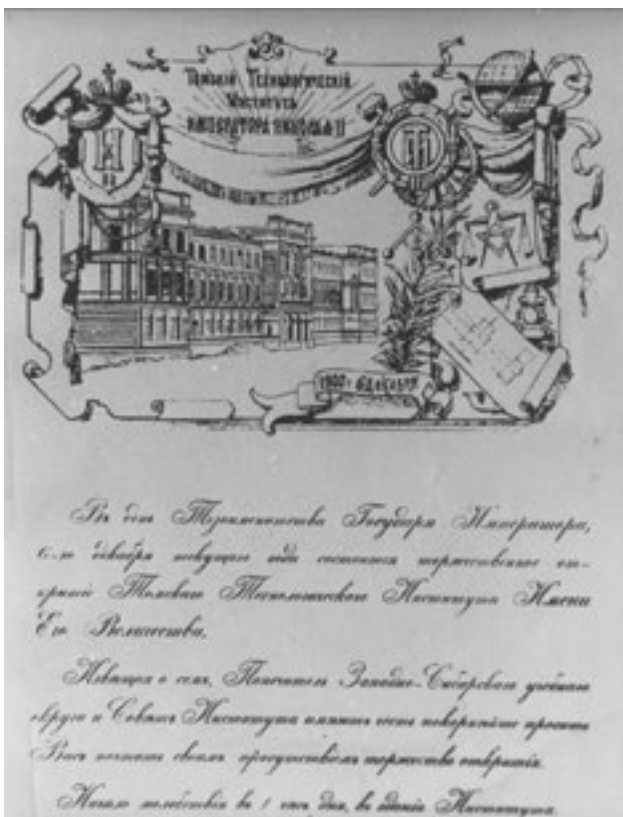 Томскій Технологическій
Институтъ
ИМПЕРАТОРА НИКОЛАЯ II
Н
II
ТТИ
1900 г. 6 ДЕКАБРЯ
Въ день Тезоименитства Государя Императора,
6-го декабря текущаго года состоится торжественное от-
крытіе Томскаго Технологическаго Института Имени
Его Величества.
Извѣщая о семъ, Попечитель Западно-Сибирскаго учебнаго
округа и Совѣтъ Института имѣютъ честь покорнѣйше просить
Васъ почтить своимъ присутствіемъ торжество открытія.
Начало молебствія въ 1 часъ дня, въ зданіи Института.